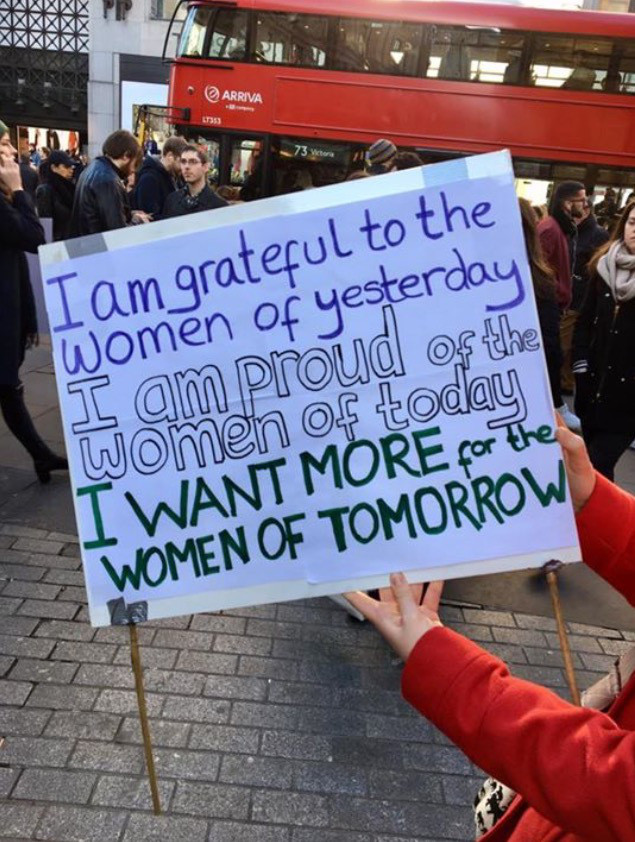 ARRIVA
L7353
73 Victoria
I am grateful to the
women of yesterday
I am proud of the
women of today
I WANT MORE for the
WOMEN OF TOMORROW